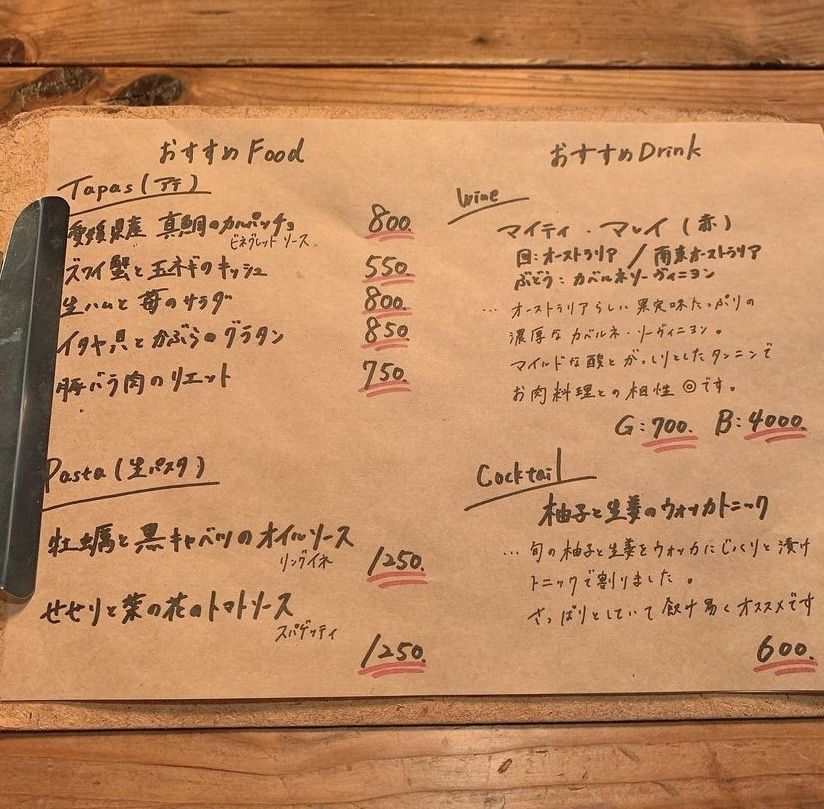 おすすめ Food
Tapas (アテ)
愛媛県産 真鯛のカルパッチョ 800.
ビネグレットソース
ズワイ蟹と玉ネギのキッシュ 550.
生ハムと苺のサラダ 800.
イタヤ貝とかぶらのグラタン 850.
豚バラ肉のリエット 750.
Pasta (生パスタ)
牡蠣と黒キャベツのオイルソース
リングイネ 1250.
せせりと菜の花のトマトソース
スパゲッティ
1250.
おすすめ Drink
Wine
マイティ・マレイ (赤)
国:オーストラリア / 南東オーストラリア
ぶどう:カベルネソーヴィニヨン
… オーストラリアらしい果実味たっぷりの
濃厚なカベルネ・ソーヴィニヨン。
マイルドな酸とがっしりとしたタンニンで
お肉料理との相性◎です。
G:700. B:4000.
Cocktail
柚子と生姜のウォッカトニック
… 旬の柚子と生姜をウォッカにじっくりと漬け
トニックで割りました。
さっぱりとしていて飲け易くオススメです
600.